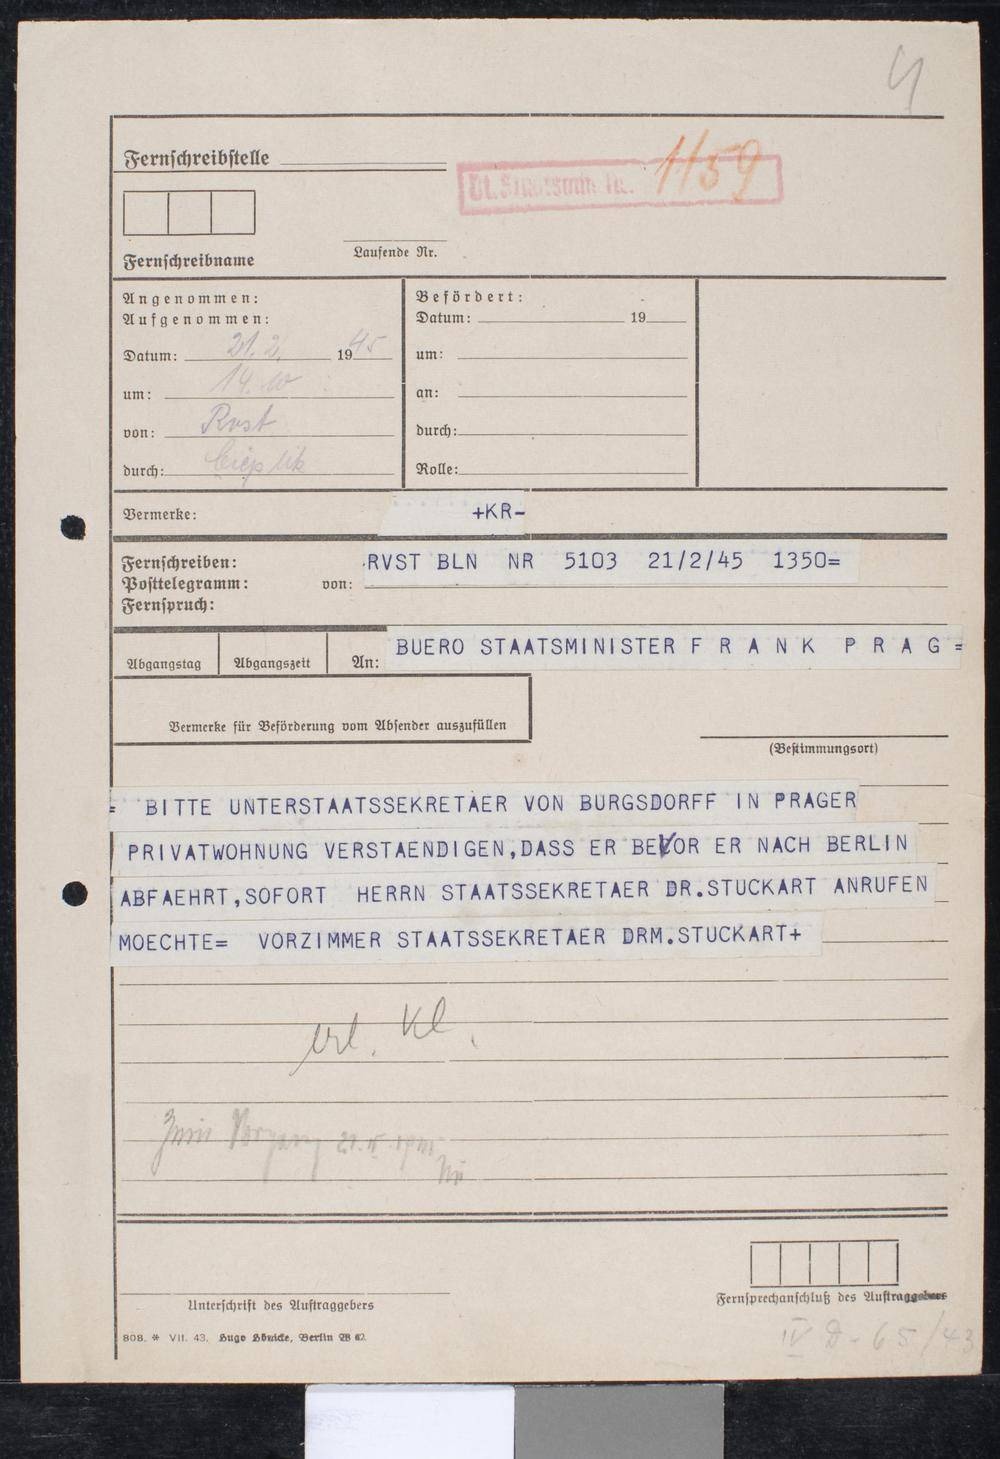 4
Fernschreibstelle
1159
Fernschreibname
Laufende Nr.
Angenommen:
Aufgenommen:
Datum: 21.2. 1945
um: 14.10
von: Rvst
durch:
Befördert:
Datum: 19
um:
an:
durch:
Rolle:
Vermerke: +KR-
Fernschreiben:
Posttelegramm: von:
Fernspruch:
RVST BLN NR 5103 21/2/45 1350=
Abgangstag Abgangszeit An: BUERO STAATSMINISTER F R A N K P R A G =
Vermerke für Beförderung vom Absender auszufüllen
(Bestimmungsort)
= BITTE UNTERSTAATSSEKRETAER VON BURGSDORFF IN PRAGER
PRIVATWOHNUNG VERSTAENDIGEN,DASS ER BEVOR ER NACH BERLIN
ABFAEHRT,SOFORT HERRN STAATSSEKRETAER DR.STUCKART ANRUFEN
MOECHTE= VORZIMMER STAATSSEKRETAER DRM.STUCKART+
erl. Kl.
Zum Vorgang
Unterschrift des Auftraggebers
Fernsprechanschluß des Auftraggebers
808. * VII. 43. Hugo Hönicke, Berlin W 62.
IV D - 65/43